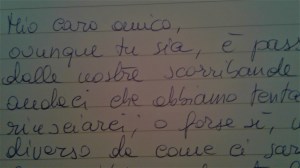 Mio caro amico,
ovunque tu sia, è pass
dalle nostre scorribande
audaci che abbiamo tenta
riusciarci, o forse sì, 
diverso da come ci sar